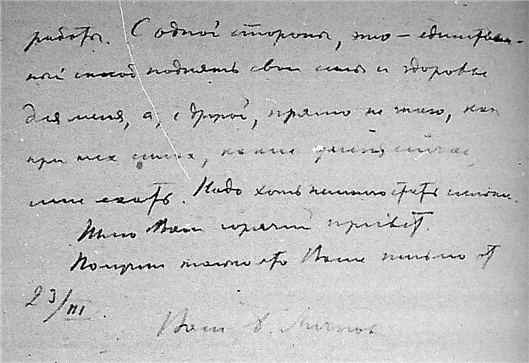 работы. С одной стороны, это – единствен-
ный способ поднять свои силы и здоровье
для меня, а, с другой, прямо не знаю, как
при тех силах, какие сейчас,
мне ехать. Надо хоть немного стать
Шлю Вам горячий привет.
Получил только что Ваше письмо от
23/III.
Ваш